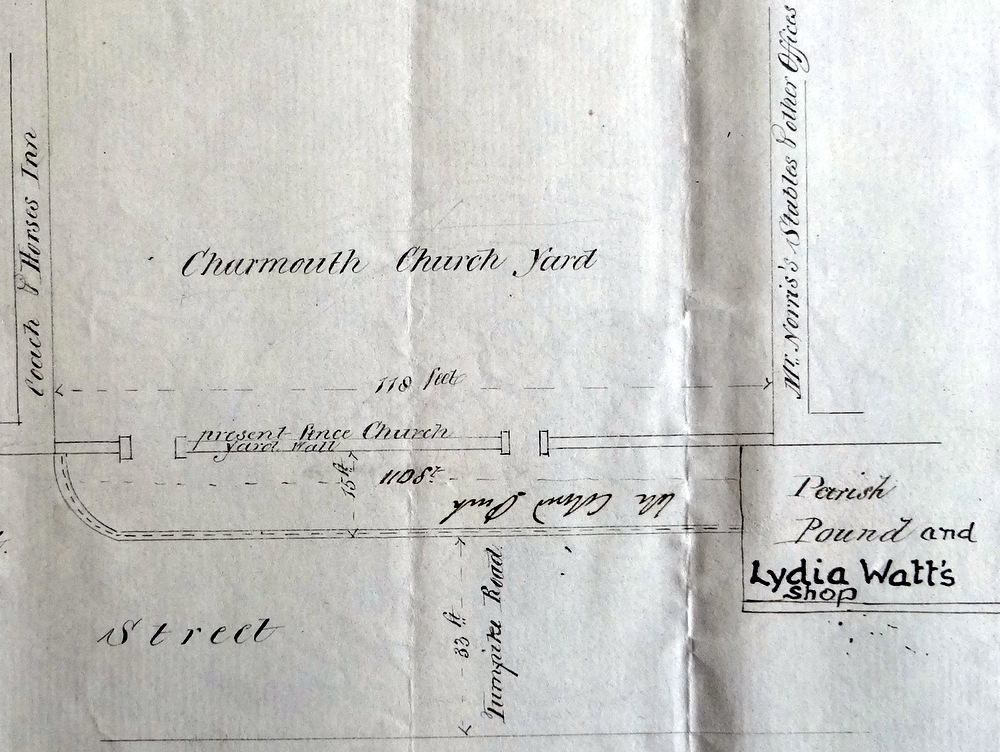 Coach & Horses Inn
Mr. Norris's Stables & other Offices
Charmouth Church Yard
118 feet
present Fence Church
Yard Wall
15 ft
110 ft
Parish
Pound and
Lydia Watt's
Shop
Street
33 ft
Turnpike Road